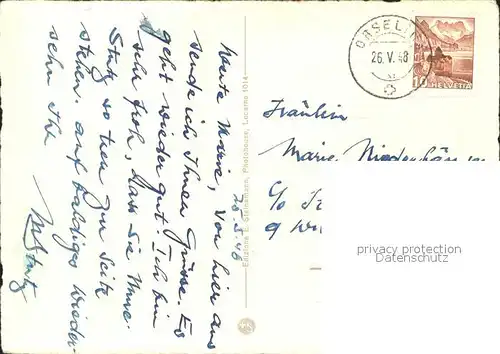 26.5.48
Heute Marie, von hier aus
sende ich Ihnen Grüsse. Es
geht wieder gut! Ich bin
sehr froh, dass Sie
Stutz so treu zur Seite
stehen. auf baldiges Wieder-
sehn Ihr
MStutz
Edizione E. Steinemann, Photohouse, Locarno 1014
ORSELIN
26. V. 48
10 HELVETIA
Fräulein
Marie
c/o
9
privacy protection
Datenschutz